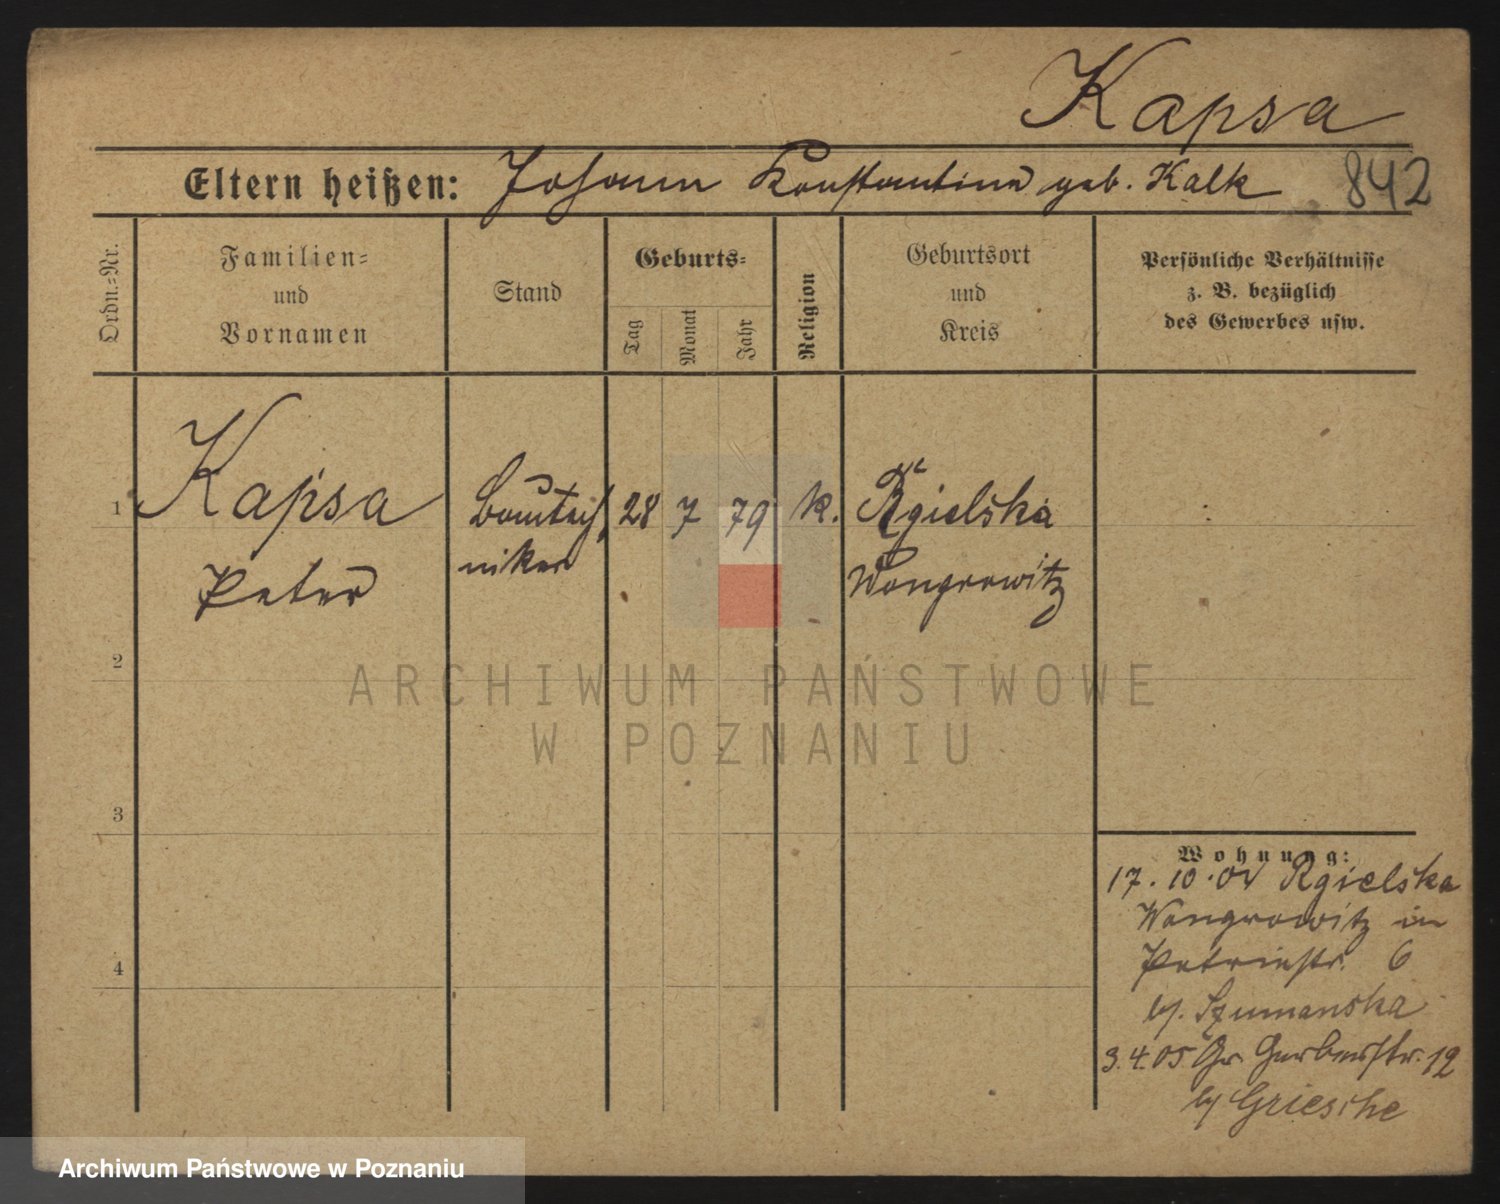 Kapsa
Eltern heißen: Johann Konstantina geb. Kalk 842
Ordn.-Nr.
Familien- und Vornamen
Stand
Geburts-
Tag
Monat
Jahr
Religion
Geburtsort und Kreis
Persönliche Verhältnisse
z. B. bezüglich
des Gewerbes usw.
1 Kapsa Bautech 28 7 79 k. Rgielska
Peter niker Wongrowitz
2
ARCHIWUM PAŃSTWOWE
W POZNANIU
3
Wohnung:
17.10.04 Rgielska
Wongrowitz in
4 Petristr. 6
bj. Szumanska
3.4.05 Gr. Gerberstr. 12
bj Griesche
Archiwum Państwowe w Poznaniu